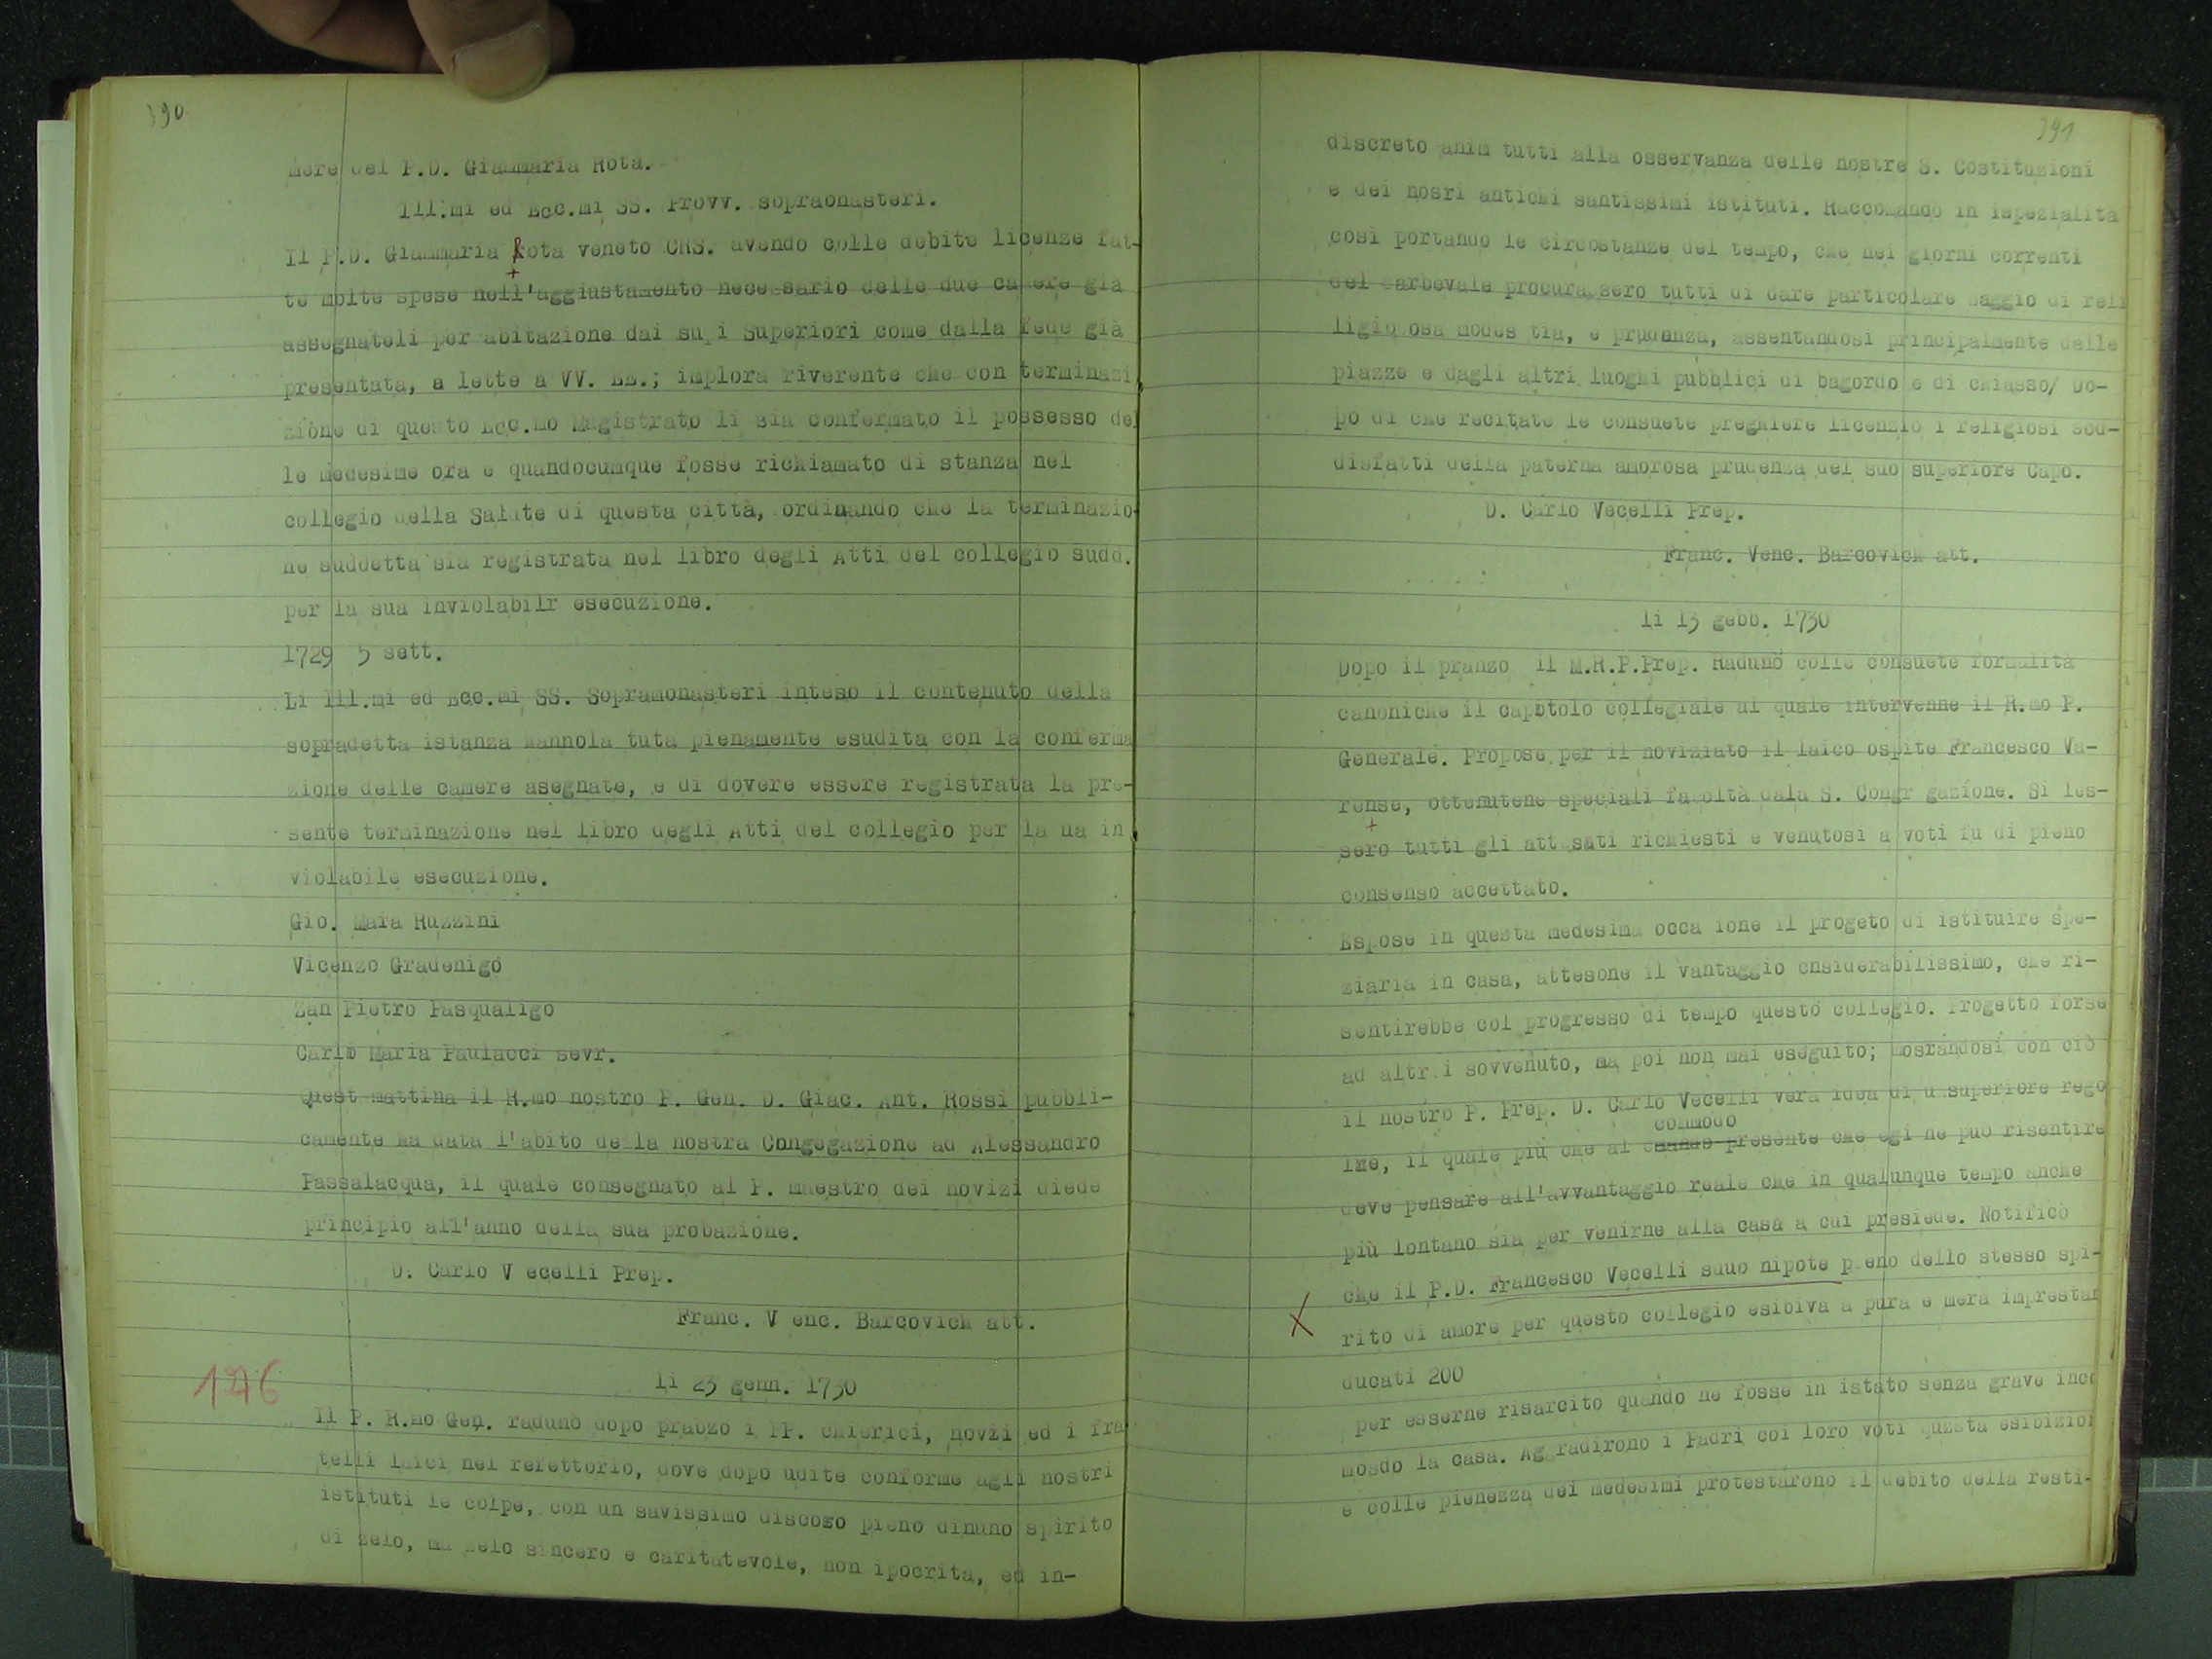 390
mere del P.D. Giammaria Rota.
Ill.mi ed Ecc.mi SS. Provv. sopraonasteri.
Il P.D. Giammaria Rota veneto CRS. avendo colle debite licenze fat-
te molte spese nell'aggiustamento necessario delle due camere già
assegnateli per abitazione dai su i Superiori come dalla fede già
presentata, a lette a VV. EE.; implora riverente che con terminazi
zione di questo Ecc.mo Magistrato li sia confermato il possesso del
le medesime ora e quandocumque fosse richiamato di stanza nel
collegio della Salute di questa città, ordinando che la terminazio-
ne suddetta sia registrata nel libro degli Atti del collegio sudd.
per la sua inviolabilr esecuzione.
1729 5 sett.
Li Ill.mi ed Ecc.mi SS. Sopramonasteri inteso il contenuto della
sopradetta istanza hannola tuta pienamente esudita con la conferma
zione delle camere asegnate, e di dovere essere registrata la pre-
sente terminazione nel libro degli Atti del collegio per la ua in
violabile esecuzione.
Gio. Mara Ruzzini
Vicenzo Gradenigo
Zan Pietro Pasqualigo
Carlo Maria Paulacci sevr.
Quest mattina il R.mo nostro P. Gen. D. Giac. Ant. Rossi pubbli-
camente ha data l'abito della nostra Congegazione ad Alessandro
Passalacqua, il quale consegnato al P. maestro dei novizi diede
principio all'anno della sua probazione.
D. Carlo V ecelli Prep.
Franc. V enc. Barcovich att.
li 23 genn. 1730
Il P. R.mo Gen. radunò dopo prabzo i PP. chierici, novzi ed i fra
telli laici nel refettorio, dove dopo udite conforme agli nostri
istituti le colpe, con un savissimo discoso pieno dinuno spirito
di zelo, ma zelo sincero e caritatevole, non ipocrita, ed in-
391
discreto anim tutti alla osservanza delle nostre S. Costituzioni
e dei nosri antichi santissimi istituti. Raccomandò in ispezialità
così portando le circostanze del tempo, che nei giorni correnti
del carbevale procurassero tutti di dare particolare saggio di reli
ligio osa modes tia, e prudenza, assentandosi principalmente dalle
piazze e dagli altri luoghi pubblici di bagordo e di chiasso/ Do-
po di che recitate le consuete preghiere licenziò i religiosi sod-
disfatti della paterna amorosa prudenza del suo superiore Capo.
D. Carlo Vecelli Prep.
Franc. Venc. Barcovich att.
li 13 gebb. 1730
Dopo il pranzo il M.R.P.Prep. Radunò colle consuete formalità
canoniche il capotolo collegiale al quale intervenne il R.mo P.
Generale. Propose per il noviziato il laico ospite Francesco Va-
rense, ottenutene speciali facoltà dala S. Congr gazione. Si les-
sero tutti gli att sati richiesti e venutosi a voti fu di pieno
consenso accettato.
Espose in questa medesima occa ione il progeto di istituire spe-
ziaria in casa, attesone il vantaggio cnsiderabilissimo, che ri-
sentirebbe col progresso di tempo questo collegio. Progetto forse
ad altr i sovvenuto, ma poi non mai eseguito; mosrandosi con ciò
il nostro P. Prep. D. Carlo Vecelli vera idea di u superiore rego
commodo
lme, il quale più che al presente che egi ne può risentire
deve pensare all'avvantaggio reale che in qualunque tempo anche
più lontano sia per venirne alla casa a cui presiede. Notificò
che il P.D. Francesco Vecelli suuo nipote pieno dello stesso spi-
X rito di amore per questo collegio esibiva a pura e mera imprestan
ducati 200
per esserne risarcito quando ne fosse in istato senza grave inco
mosdo la casa. Aggradirono i Padri coi loro voti quzsta esibizion
e colle pienezza dei medesimi protestarono il debito della resti-